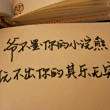 爷不是你的小浣熊
玩不出你的其乐无穷